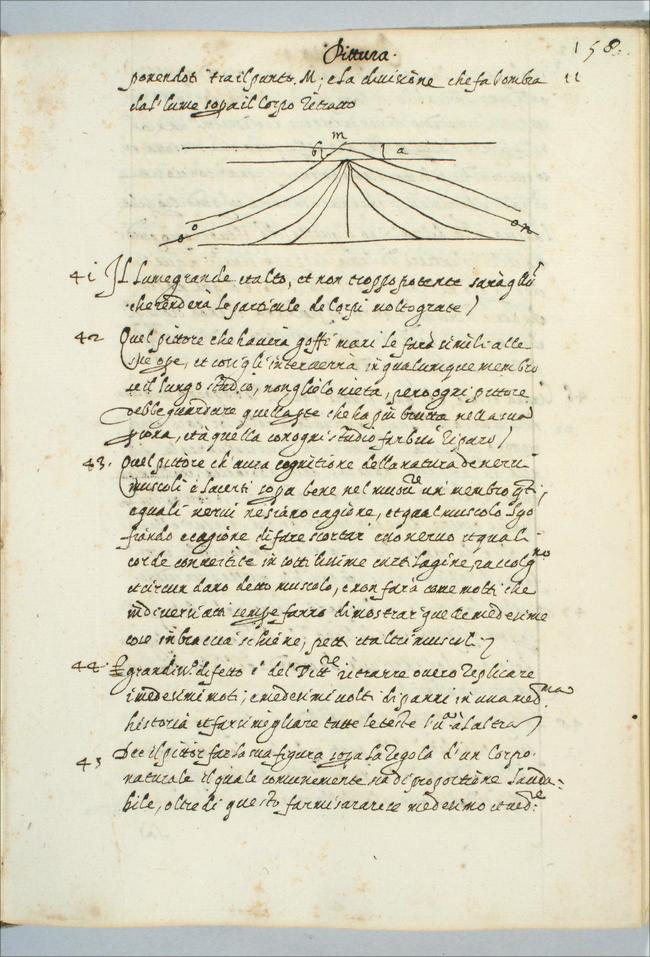 Pittura. 158.
ponendoti tra il punto. M. e la divisione che fa l'ombra 11
dal' lume sopa il Corpo retratto
m
b a
o o o n
41 Il lume grande et alto, et non troppo potente sarà
che renderà le particule de Corpi molto grate)
42 Quel pittore che haverà goffi mani le farà simili alle
sue ope, et così gl'interverrà in qualunque membro
se il lungo studio, non glielo vieta, pero ogni pittore
debbe guardare quella pte che ha più brutta nella sua
psona, et à quella con ogni studio far buo riparo)
43. Quel pittore ch'aura cognitione della natura de nervi
muscoli e lacerti sapa bene nel un membro qti
e quali nervi ne siano cagione, et qual muscolo sgo
fiando e cagione di fare scortar esso nervo et quali
corde convertite in sottilissime cartilagine,
et circundano detto muscolo, e non farà come molti che
in diversi atti sempe fanno dimostrar quelle medesime
cose in braccia schiene, petti et altri muscoli
44. grandiss. difetto è del Pitt.re ritrarre overo replicare
i medesimi moti, e medesimi volti di panni in una med.ma
historia et far simigliare tutte le teste l'una à l'altra)
45 Dee il pittor far la sua figura sopa la regola d'un Corpo
naturale il quale comunemente sia di proportione lauda-
bile, oltre di questo far misurare se medesimo et